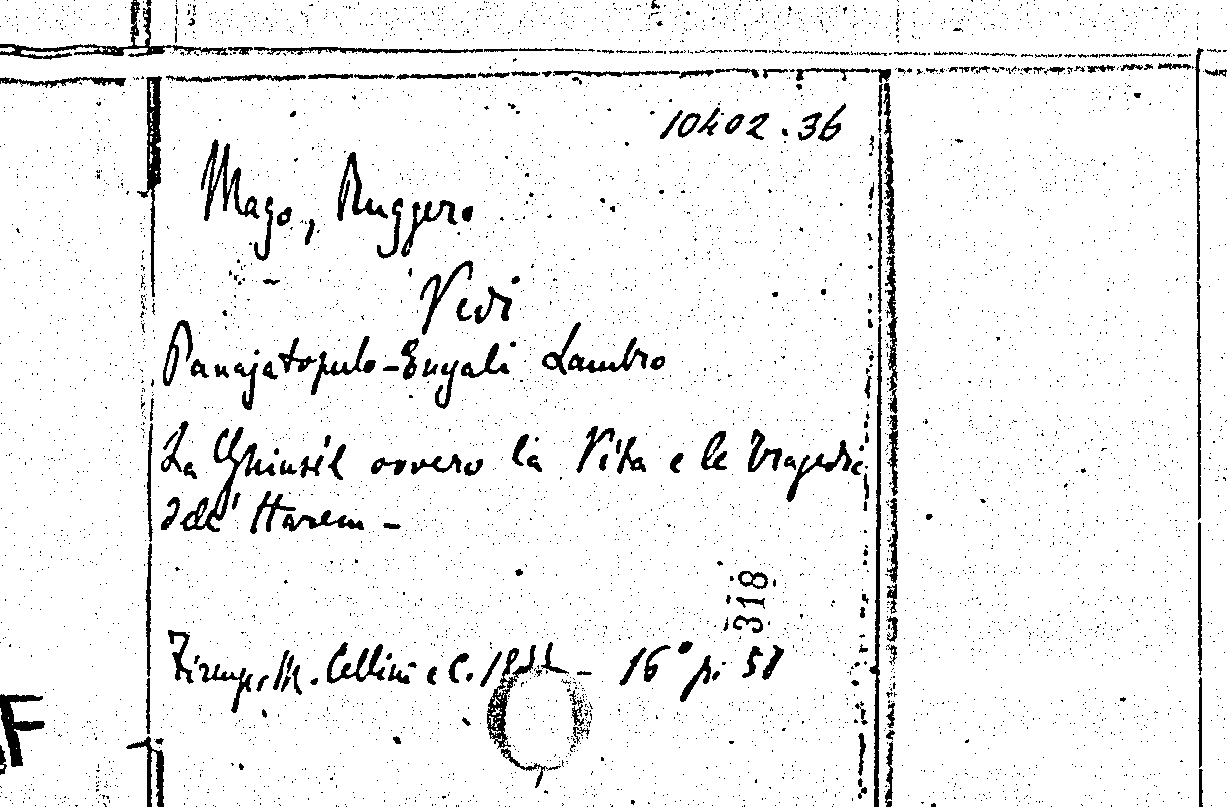 10402.36
Mago, Ruggero
Vedi
Panajatopulo-Eugali Lambro
La Ghiusèl ovvero la Vita e le Tragedie
dell' Harem -
318
Firenze, M. Cellini e C. - 16° p. 57
F